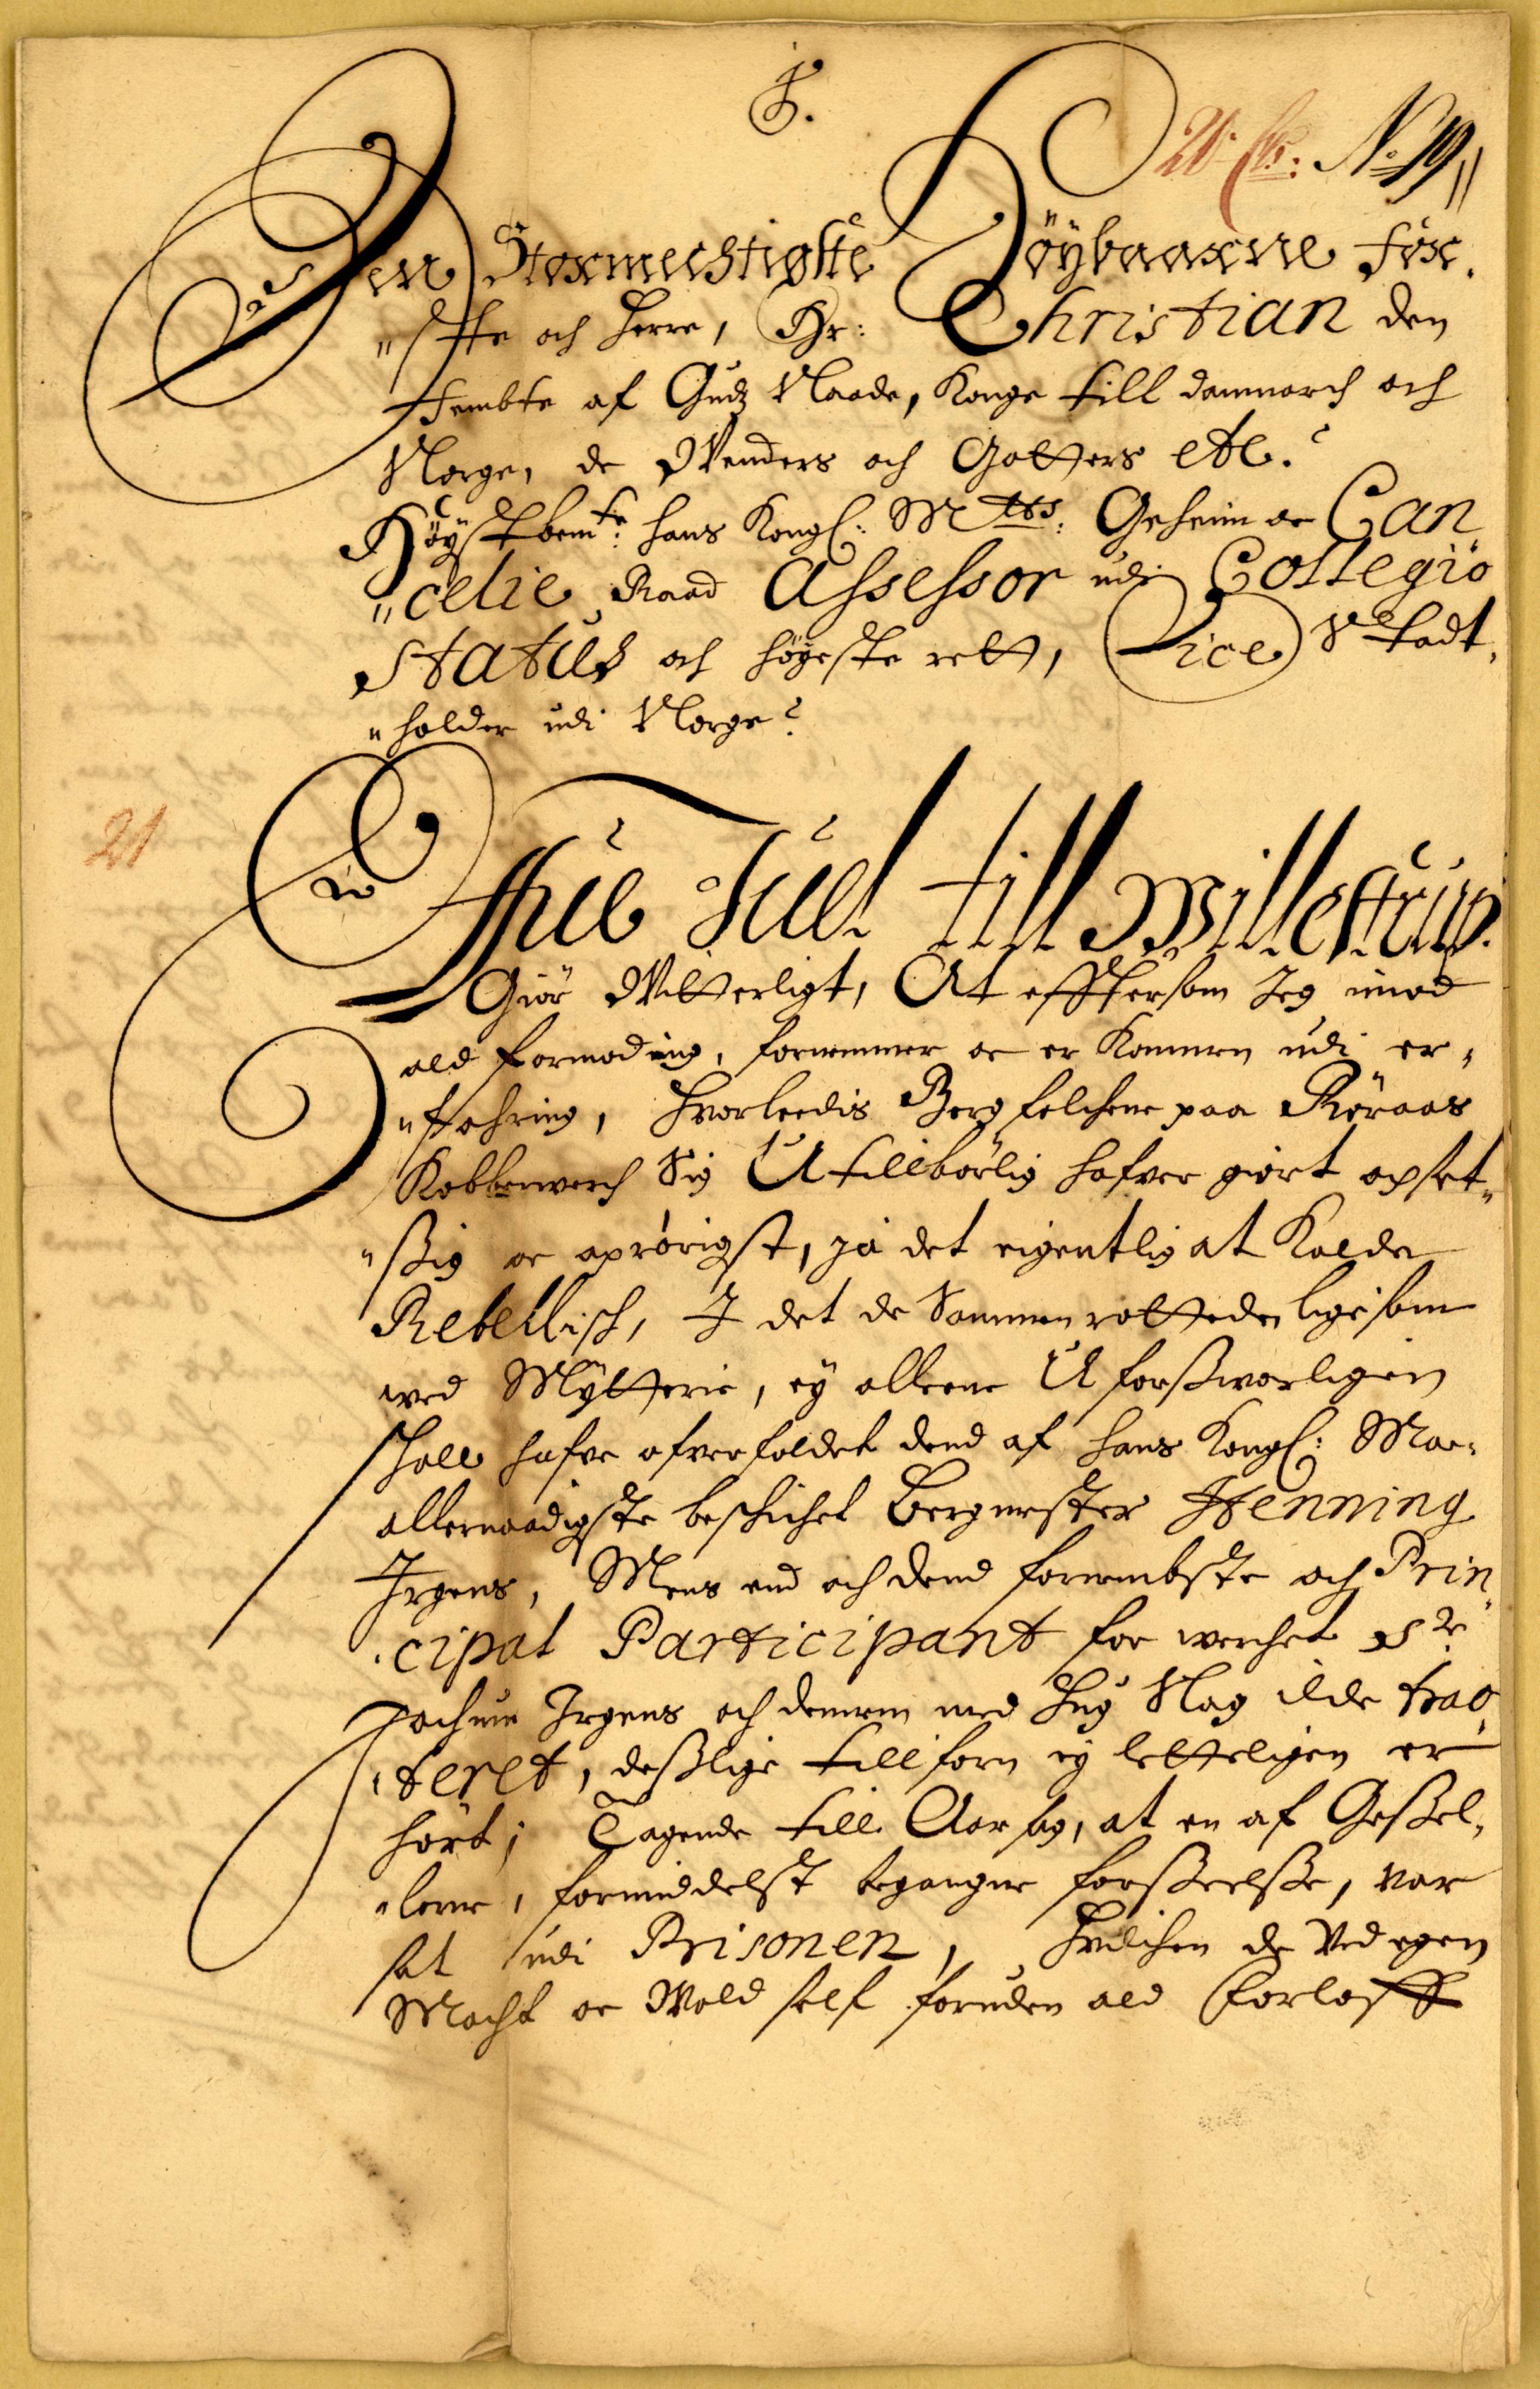 S.
21 No 19
Den Stormechtigste Høybaarne før,
"ste och Herre, Hr: Christian den
Fembte af Gudz Naade, Konge till danmarch och
Norge, de Wenders och Gotters etc.
Høystbemte: hans Kongl: Mtts: Geheime oc Can
"celie Raad Assessor udi Collegio
Status och høyeste rett, Vice Stadt,
"holder udi Norge
21
Offue Juel till Willestrup.
Giør Witterligt, At effttersom Jeg imod
ald formoding, fornemmer oc er Kommen udi er,
"fahring, hvorleedis Berg folchene paa Røraas
Kobberwerch Sig Utilbørlig hafver giørt opset,
"ßig oc oprørigst, ja det eigentlig at Kalde
Rebellisch, I det de Sammenrottede, ligesom
wed Mytterie, ey alleene Uforßwarligen
schall hafve ofverfaldet dend af hans Kongl: Ma:
allernaadigste beschichet Bergmester Henning
Irgens, Mens end och dend fornembste och Prin
"cipal Participant for werchet Sr
Jochum Irgens och dennem med Hug Slag ilde trac
"teret, deßlige till forn ey letteligen er
hørt; Tagende till Aarsag, at en af Geßel,
"lerne, formiddelst begangne forßeelße, var
sat udi Prisonen, Hvilchen de Ved egen
Macht oc Wold self foruden ald Forloff